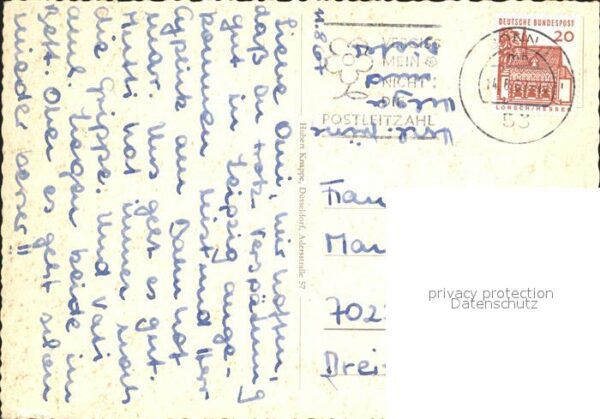 11.8.67
Liebe Omi, wir hoffen,
daß du trotz Verspätung
gut in Leipzig ange-
kommen bist und Herr
am Bahnhof
war. Uns geht es gut.
Mutti hat immer noch
die Grippe. Und Vati
auch. Liegen beide im
Bett. Aber es geht schon
wieder besser!!
Hubert Knappe, Düsseldorf, Adersstraße 57
DEUTSCHE BUNDESPOST
20
LORSCH/HESSEN
VERGISS
MEIN
NICHT
DIE
POSTLEITZAHL
53
Frau
Mar
702
Drei
privacy protection
Datenschutz